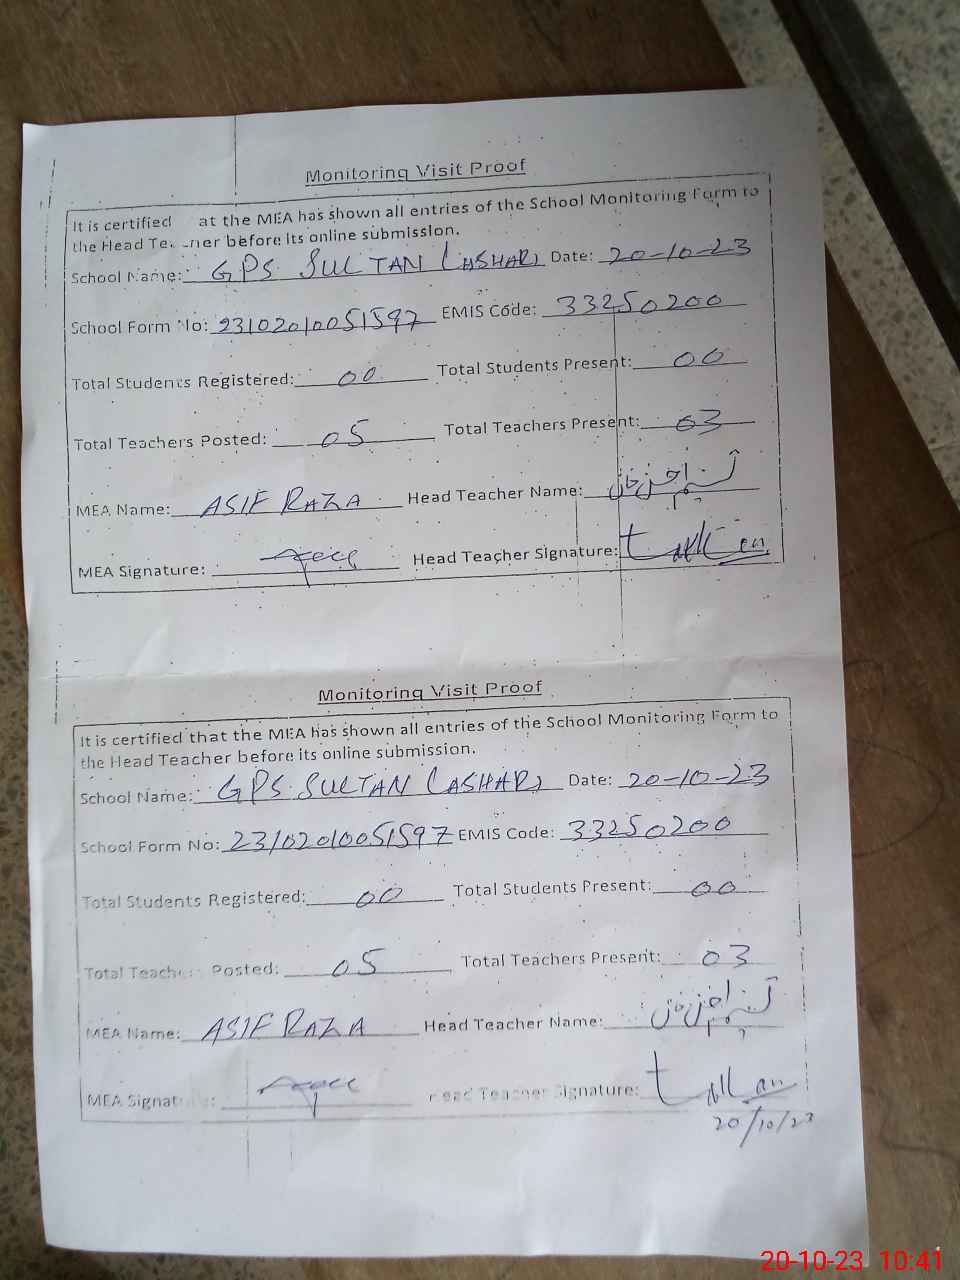 Monitoring Visit Proof
It is certified at the MEA has shown all entries of the School Monitoring Form to
the Head Te ner before its online submission.
School Name: GPS. SULTAN LASHARI Date: 20-10-23
School Form No: 23102010051597 EMIS Code: 33250200
Total Students Registered: 00 Total Students Present: 00
Total Teachers Posted: 05 Total Teachers Present: 03
MEA Name: ASIF RAZA Head Teacher Name:
MEA Signature: Head Teacher Signature:
Monitoring Visit Proof
It is certified that the MEA has shown all entries of the School Monitoring Form to
the Head Teacher before its online submission.
School Name: GPS. SULTAN LASHARI Date: 20-10-23
School Form No: 23102010051597 EMIS Code: 33250200
Total Students Registered: 00 Total Students Present: 00
Total Teachers Posted: 05 Total Teachers Present: 03
MEA Name: ASIF RAZA Head Teacher Name:
MEA Signature: Head Teacher Signature:
20/10/23
20-10-23 10:41